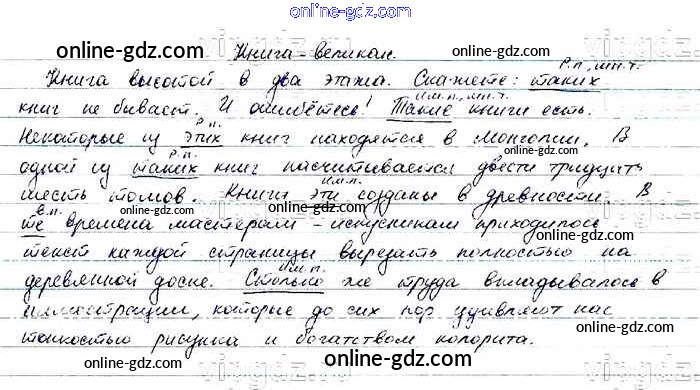 online-gdz.com
Книга-великан.
online-gdz.com online-gdz.com
Р.п., мн.ч.
Книга высотой в два этажа. Скажете: таких
И.п., мн.ч.
книг не бывает. И ошибётесь! Такие книги есть.
Р.п.
Некоторые из этих книг находятся в Монголии. В
Р.п.
одной из таких книг насчитывается двести тридцать
И.п.
шесть томов. Книги эти созданы в древности. В
online-gdz.com online-gdz.com
В.п.
те времена мастерам-искусникам приходилось
текст каждой страницы вырезать полностью на
И.п.
деревянной доске. Столько же труда вкладывалось в
иллюстрации, которые до сих пор удивляют нас
тонкостью рисунка и богатством колорита.
online-gdz.com online-gdz.com
online-gdz.com